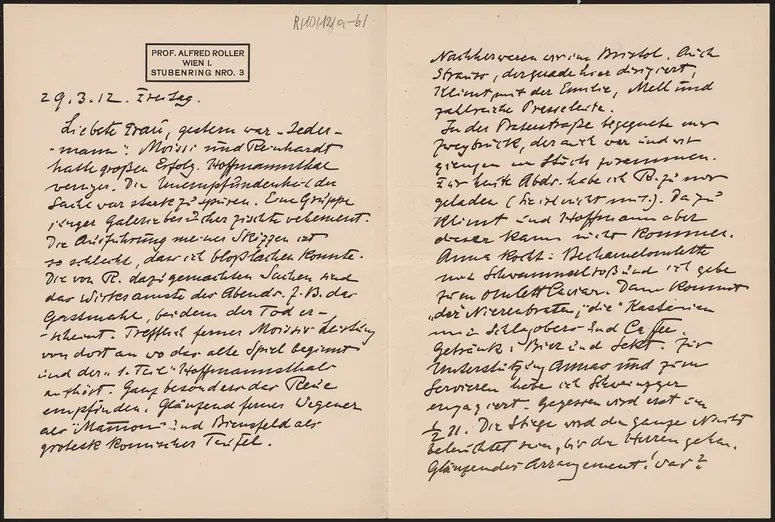 R/10/12/a-b/
PROF. ALFRED ROLLER
WIEN I.
STUBENRING NRO. 3
29.3.12. Freitag.
Liebste Frau, gestern war „Jeder-
-mann“. Moissi und Reinhardt
hatte großen Erfolg. Hoffmannsthal
weniger. Die Unempfundenheit der
Sache war stark zu spüren. Eine Gruppe
junger Galeriebesucher zischte vehement.
Die Ausführung meiner Skizzen ist
so schlecht, dass ich bloß lachen konnte.
Die von R. dazu gemachten Sachen sind
das Wirksamste des Abends. z.B. das
Gastmahl, bei dem der Tod er-
-scheint. Trefflich ferner Moissis Leistung
von dort an wo das alte Spiel beginnt
und der „1. Teil“ Hoffmannsthals
aufhört. Ganz besonders das Reue
empfinden. Glänzend ferner Wegener
als „Mamon“ und Biensfeld als
grotesk komischer Teufel.
Nachher waren wir im Bristol. Auch
Strauss, der grade hier dirigiert,
Klimt mit der Emilie, Mell und
zahlreiche Presseleute.
In der Praterstraße begegnete mir
Zweybrück, der auch war und wir
giengen ein Stück zusammen.
Für heute Abds. habe ich R. zu mir
geladen (Sie ist nicht mit.). Dazu
Klimt und Hoffmann aber
dieser kann nicht kommen.
Anna kocht: Bechamelomlette
mit Schwammerlsoß und ich gebe
zum Omlett Caviar. Dann kommt
„der“ Nierenbraten, „die“ Kastanien
mit Schlagobers und Caffee.
Getränk: Bier und Sekt. Zur
Unterstützung Annas und zum
Servieren habe ich
engagiert. Gegessen wird erst um
½ 11. Die Stiege wird die ganze Nacht
beleuchtet sein, bis die Herren gehen.
Glänzendes Arrangement! was?